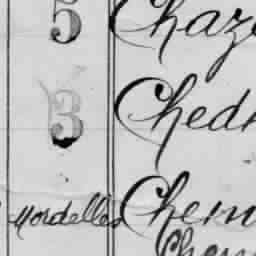 5 Chaz
3 Ched
Mordelles Chem
Chem